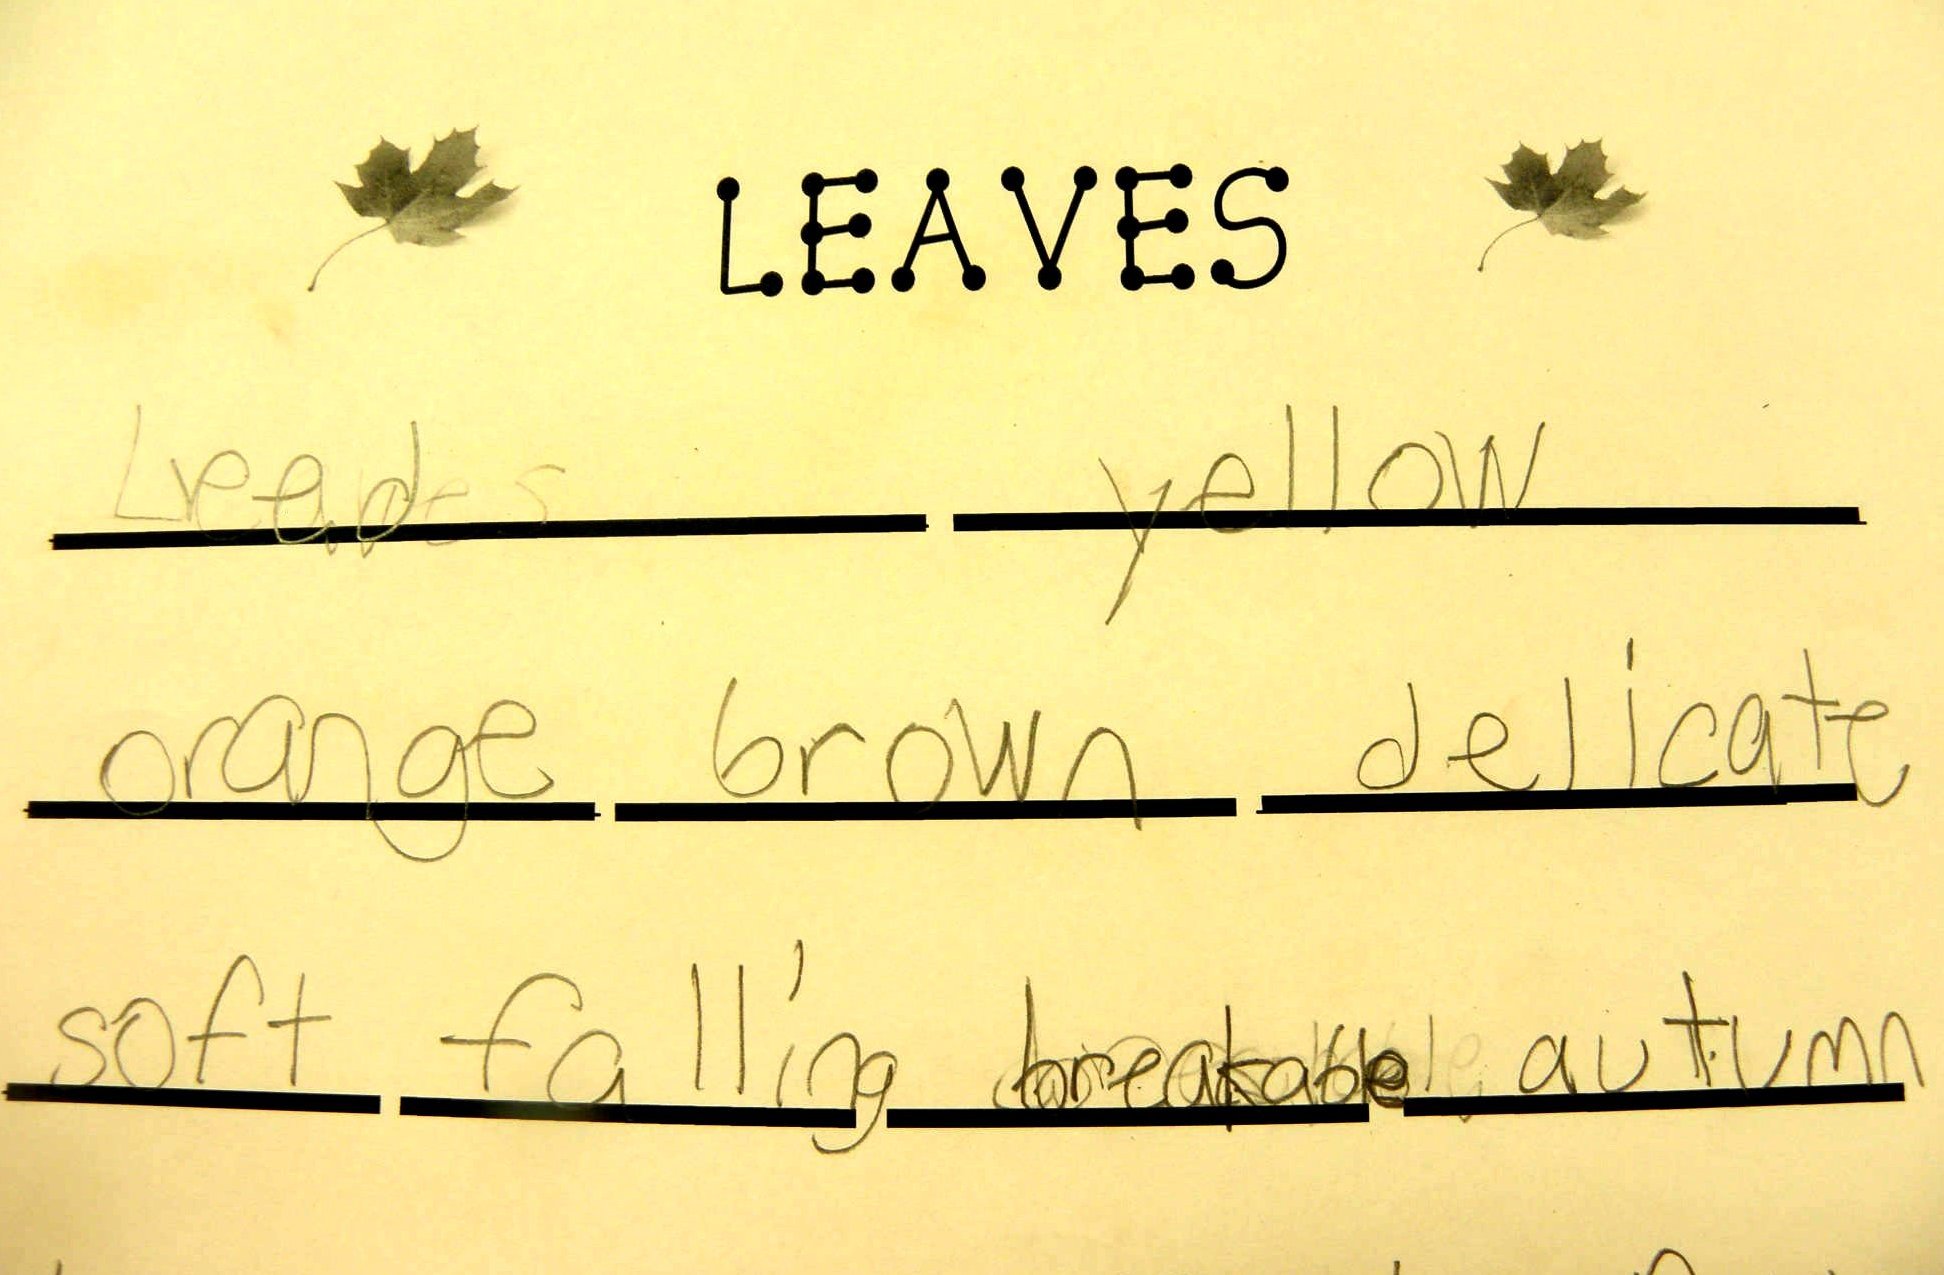 LEAVES
yellow
orange brown delicate
soft falling breakable autumn